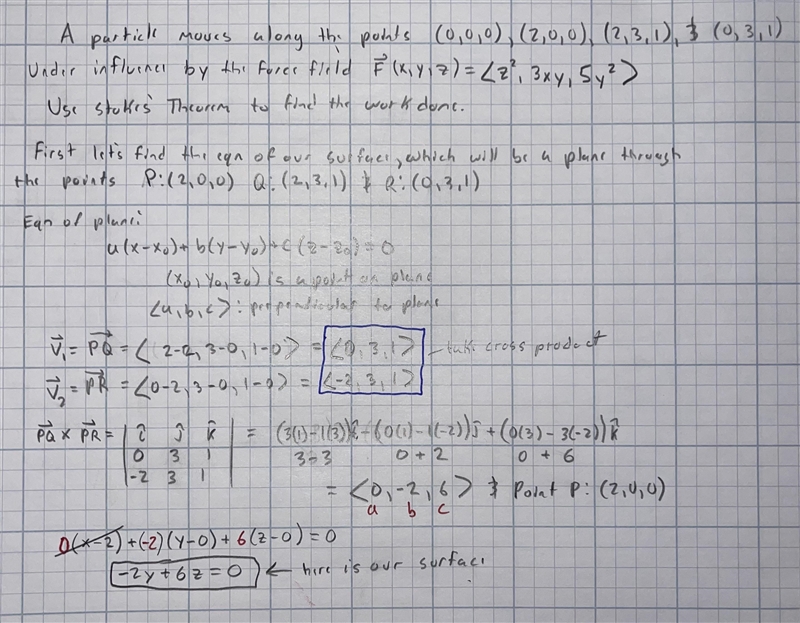 A particle moves along the points (0,0,0), (2,0,0), (2,3,1), & (0,3,1)
Under influence by the force field F⃗(x,y,z) = ⟨z², 3xy, 5y²⟩
Use Stokes' Theorem to find the work done.
First let's find the eqn of our surface, which will be a plane through
the points P:(2,0,0) Q:(2,3,1) & R:(0,3,1)
Eqn of plane:
a(x-x₀)+b(y-y₀)+c(z-z₀)=0
(x₀, y₀, z₀) is a point on plane
⟨a,b,c⟩: perpendicular to plane
V⃗₁ = PQ⃗ = ⟨2-2, 3-0, 1-0⟩ = ⟨0, 3, 1⟩ - take cross product
V⃗₂ = PR⃗ = ⟨0-2, 3-0, 1-0⟩ = ⟨-2, 3, 1⟩
PQ⃗ × PR⃗ = | î ĵ k̂ | = (3(1)-1(3))î - (0(1)-1(-2))ĵ + (0(3)-3(-2))k̂
0 3 1 3-3 0+2 0+6
-2 3 1
= ⟨0, -2, 6⟩ & Point P:(2,0,0)
a b c
0(x-2)+(-2)(y-0)+6(z-0)=0
-2y+6z=0 ← here is our surface